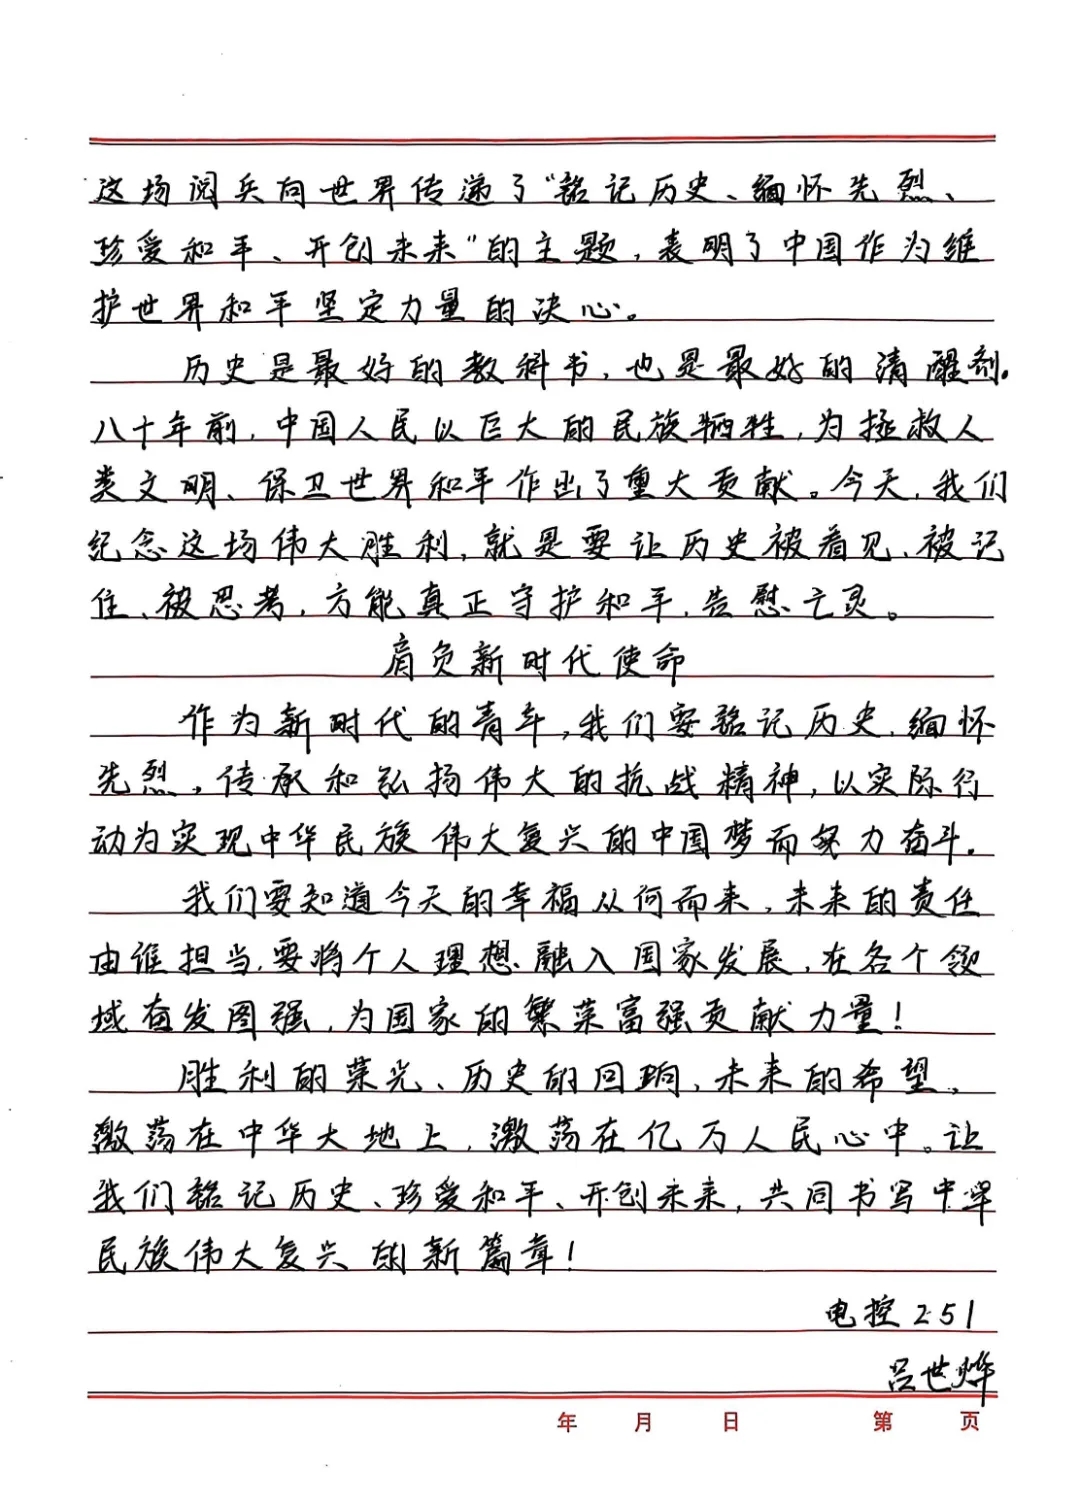 这场阅兵向世界传递了“铭记历史、缅怀先烈、
珍爱和平、开创未来”的主题，表明了中国作为维
护世界和平坚定力量的决心。
历史是最好的教科书，也是最好的清醒剂。
八十年前，中国人民以巨大的民族牺牲，为拯救人
类文明、保卫世界和平作出了重大贡献。今天，我们
纪念这场伟大胜利，就是要让历史被看见、被记
住、被思考，方能真正守护和平，告慰亡灵。
肩负新时代使命
作为新时代的青年，我们要铭记历史、缅怀
先烈，传承和弘扬伟大的抗战精神，以实际行
动为实现中华民族伟大复兴的中国梦而努力奋斗。
我们要知道今天的幸福从何而来，未来的责任
由谁担当，要将个人理想融入国家发展，在各个领
域奋发图强，为国家的繁荣富强贡献力量！
胜利的荣光、历史的回响、未来的希望，
激荡在中华大地上，激荡在亿万人民心中。让
我们铭记历史、珍爱和平、开创未来，共同书写中华
民族伟大复兴的新篇章！
电控251
吕世烨
年 月 日 第 页